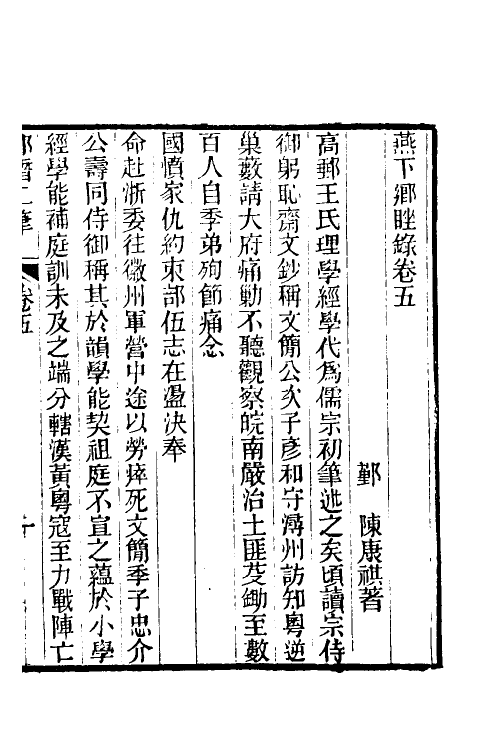 燕下鄉脞錄卷五
鄞　陳康祺著
高郵王氏理學經學代爲儒宗初筆述之矣頃讀宗侍
御躬恥齋文鈔稱文簡公次子彥和守潯州訪知粵逆
巢藪請大府痛勦不聽觀察皖南嚴治土匪芟鋤至數
百人自季弟殉節痛念
國憤家仇約束部伍志在盪決奉
命赴浙委往徽州軍營中途以勞瘁死文簡季子忠介
公壽同侍御稱其於韻學能契祖庭不宣之蘊於小學
經學能補庭訓未及之端分轄漢黃粵寇至力戰陣亡
郎潛二筆　卷五　一